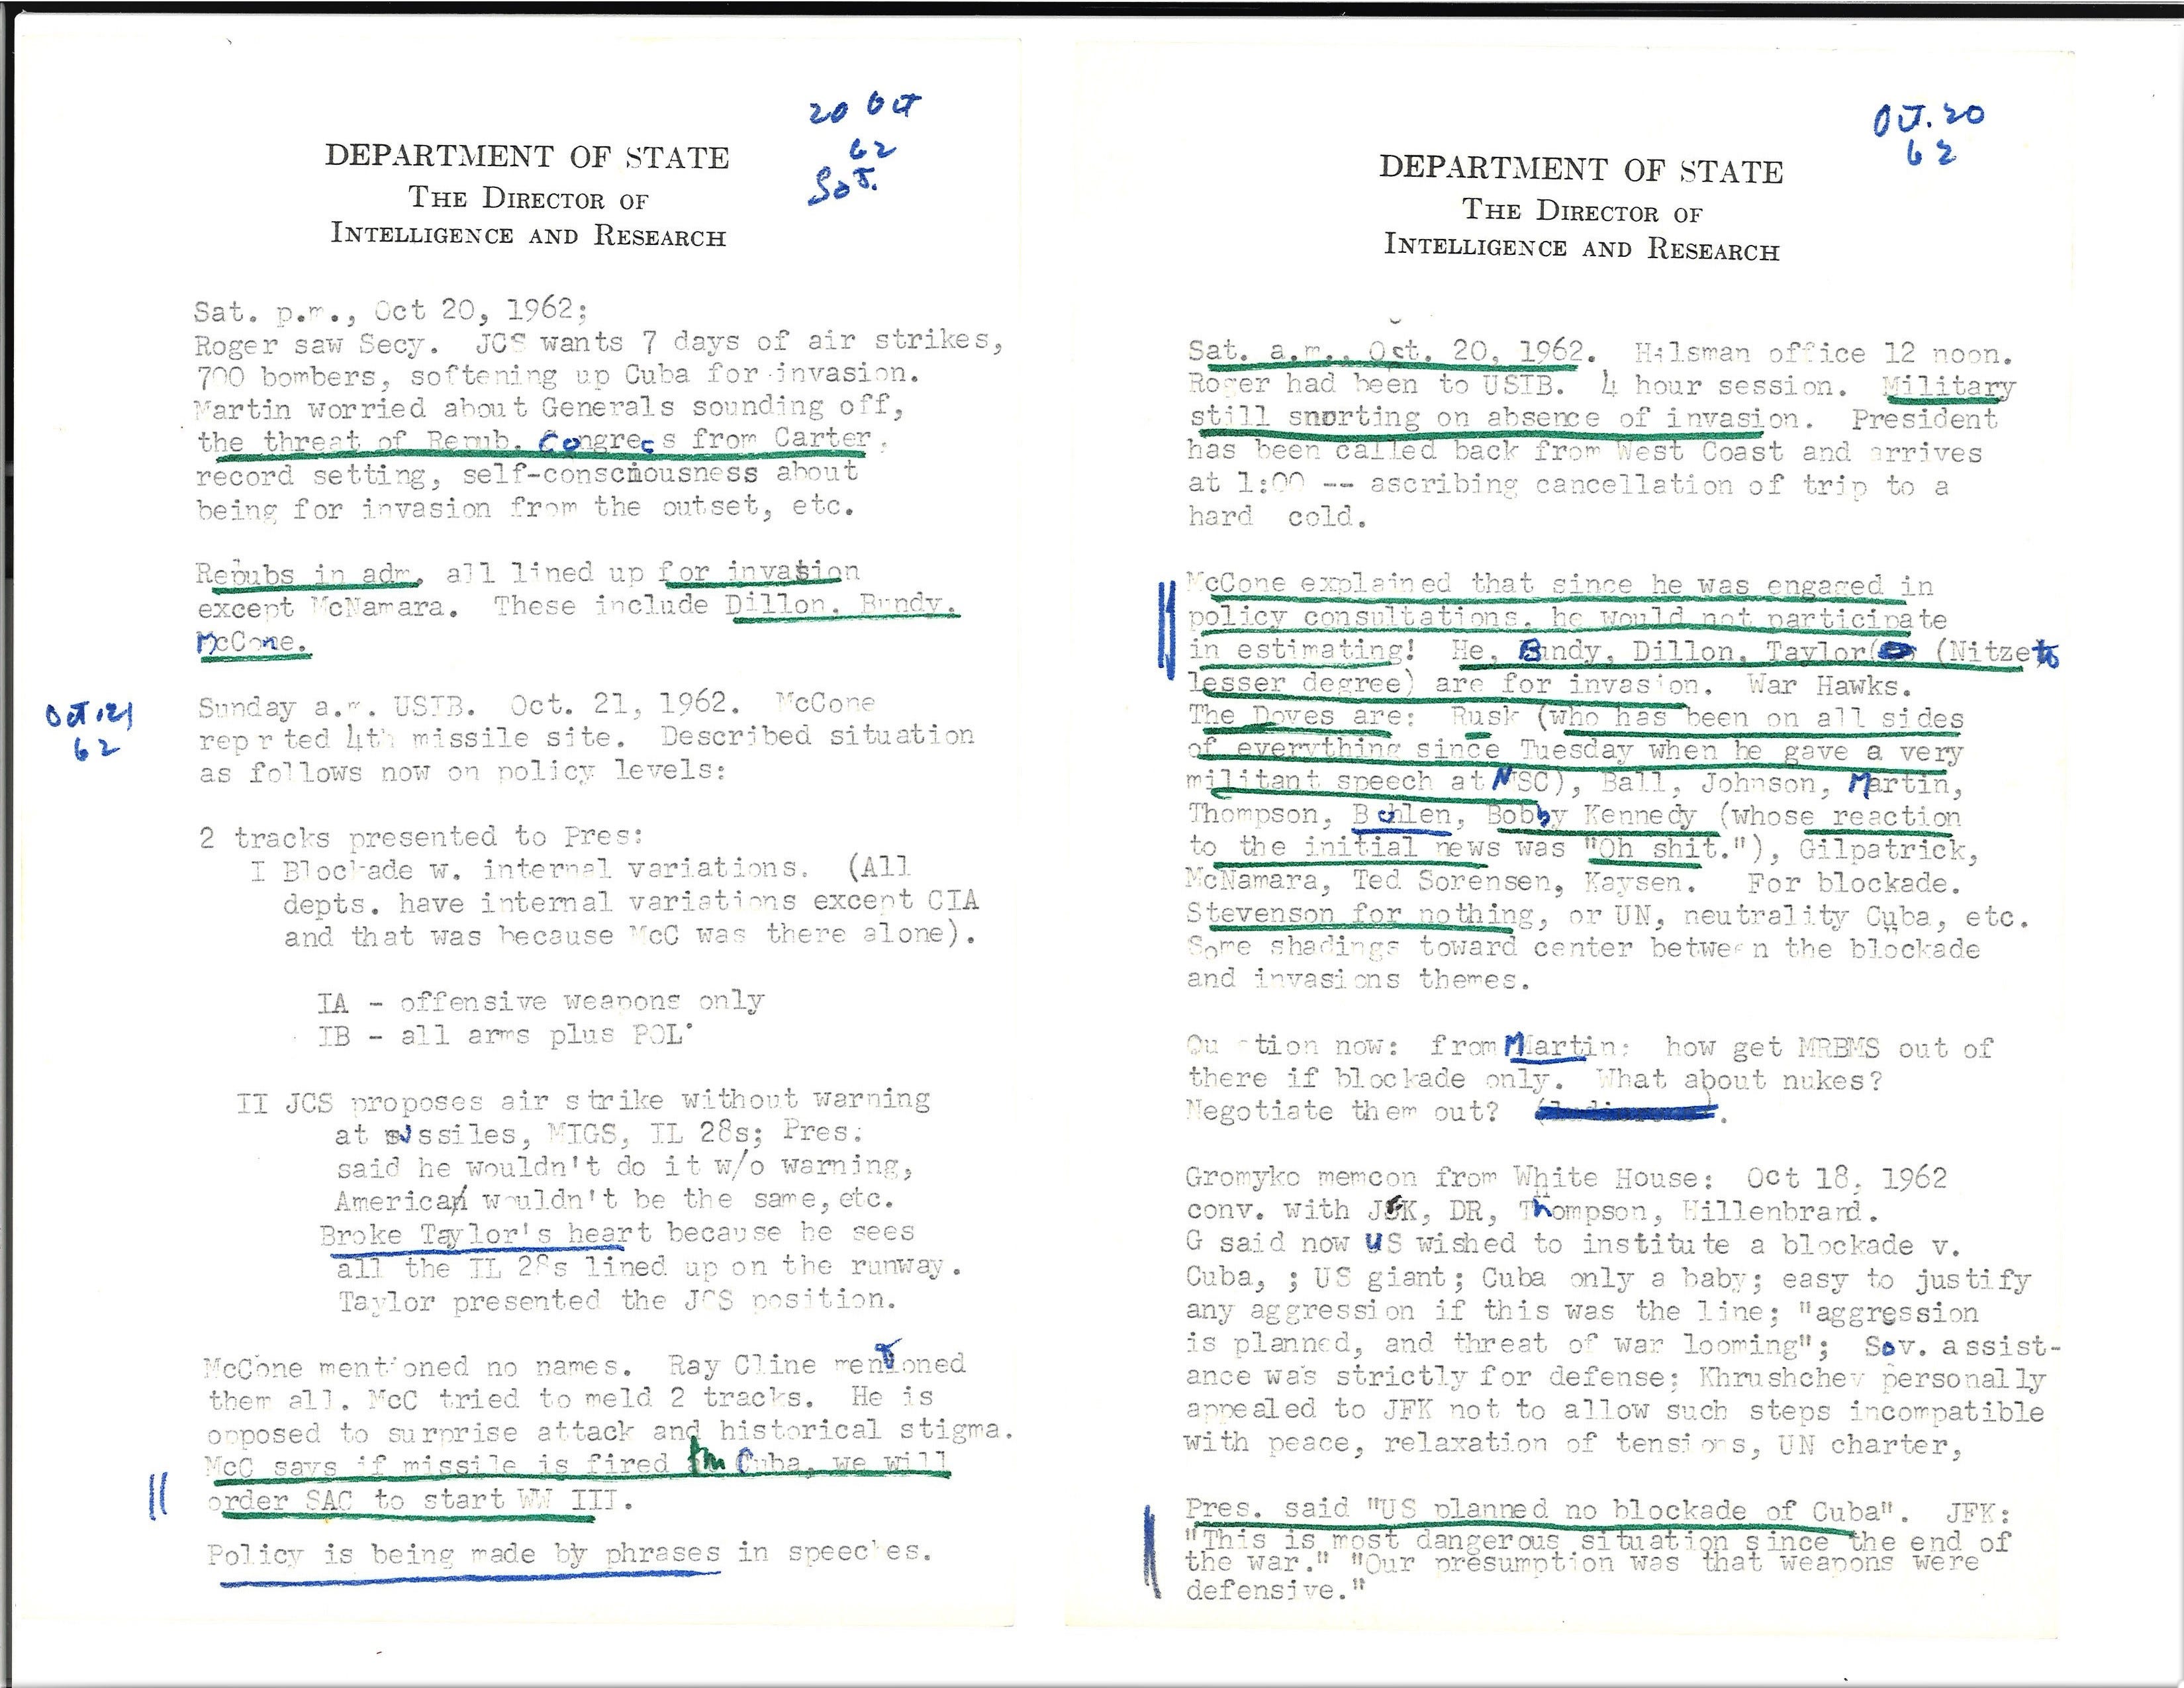 20 Oct
62
Sat.
DEPARTMENT OF STATE
THE DIRECTOR OF
INTELLIGENCE AND RESEARCH
Sat. p.m., Oct 20, 1962;
Roger saw Secy. JCS wants 7 days of air strikes,
700 bombers, softening up Cuba for invasion.
Martin worried about Generals sounding off,
the threat of Repub. Congress from Carter,
record setting, self-consciousness about
being for invasion from the outset, etc.
Repubs in adm. all lined up for invasion
except McNamara. These include Dillon, Bundy,
McCone.
Oct 21
62
Sunday a.m. USIB. Oct. 21, 1962. McCone
reprted 4th missile site. Described situation
as follows now on policy levels:
2 tracks presented to Pres:
I Blockade w. internal variations. (All
depts. have internal variations except CIA
and that was because McC was there alone).
IA - offensive weapons only
IB - all arms plus POL
II JCS proposes air strike without warning
at missiles, MIGS, IL 28s; Pres.
said he wouldn't do it w/o warning,
America wouldn't be the same, etc.
Broke Taylor's heart because he sees
all the IL 28s lined up on the runway.
Taylor presented the JCS position.
McCone mentioned no names. Ray Cline mentioned
them all. McC tried to meld 2 tracks. He is
opposed to surprise attack and historical stigma.
McC says if missile is fired fm Cuba, we will
order SAC to start WW III.
Policy is being made by phrases in speeches.
Oct. 20
62
DEPARTMENT OF STATE
THE DIRECTOR OF
INTELLIGENCE AND RESEARCH
Sat. a.m., Oct. 20, 1962. Hilsman office 12 noon.
Roger had been to USIB. 4 hour session. Military
still snorting on absence of invasion. President
has been called back from West Coast and arrives
at 1:00 -- ascribing cancellation of trip to a
hard cold.
McCone explained that since he was engaged in
policy consultations, he would not participate
in estimating! He, Bundy, Dillon, Taylor (Nitze to
lesser degree) are for invasion. War Hawks.
The Doves are: Rusk (who has been on all sides
of everything since Tuesday when he gave a very
militant speech at NSC), Ball, Johnson, Martin,
Thompson, Bohlen, Bobby Kennedy (whose reaction
to the initial news was "Oh shit."), Gilpatrick,
McNamara, Ted Sorensen, Kaysen. For blockade.
Stevenson for nothing, or UN, neutrality Cuba, etc.
Some shadings toward center between the blockade
and invasions themes.
Question now: from Martin: how get MRBMS out of
there if blockade only. What about nukes?
Negotiate them out?
Gromyko memcon from White House: Oct 18, 1962
conv. with JFK, DR, Thompson, Hillenbrand.
G said now US wished to institute a blockade v.
Cuba, ; US giant; Cuba only a baby; easy to justify
any aggression if this was the line; "aggression
is planned, and threat of war looming"; Sov. assist-
ance was strictly for defense; Khrushchev personally
appealed to JFK not to allow such steps incompatible
with peace, relaxation of tensions, UN charter,
Pres. said "US planned no blockade of Cuba". JFK:
"This is most dangerous situation since the end of
the war." "Our presumption was that weapons were
defensive."